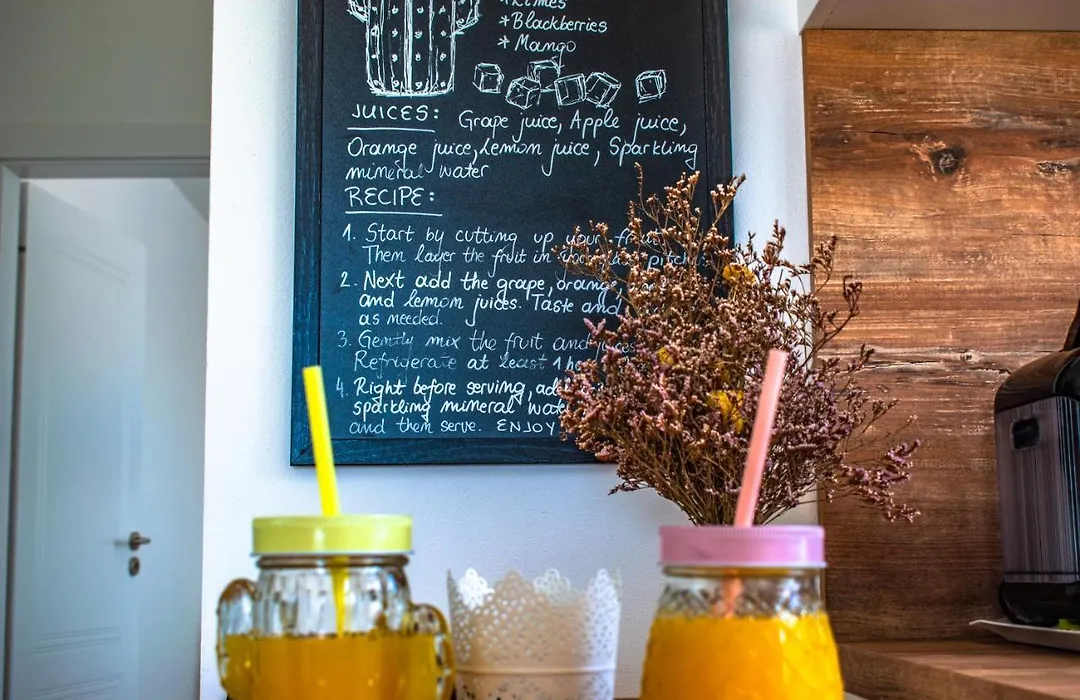 *Limes
*Blackberries
* Mango
JUICES: Grape juice, Apple juice,
Orange juice, Lemon juice, Sparkling
mineral water
RECIPE:
1. Start by cutting up your
Them layer the fruit in
2. Next add the grape, orange,
and lemon juices. Taste and
as needed.
3. Gently mix the fruit and juices
Refrigerate at least 1
4. Right before serving,
sparkling mineral
and them serve. ENJOY